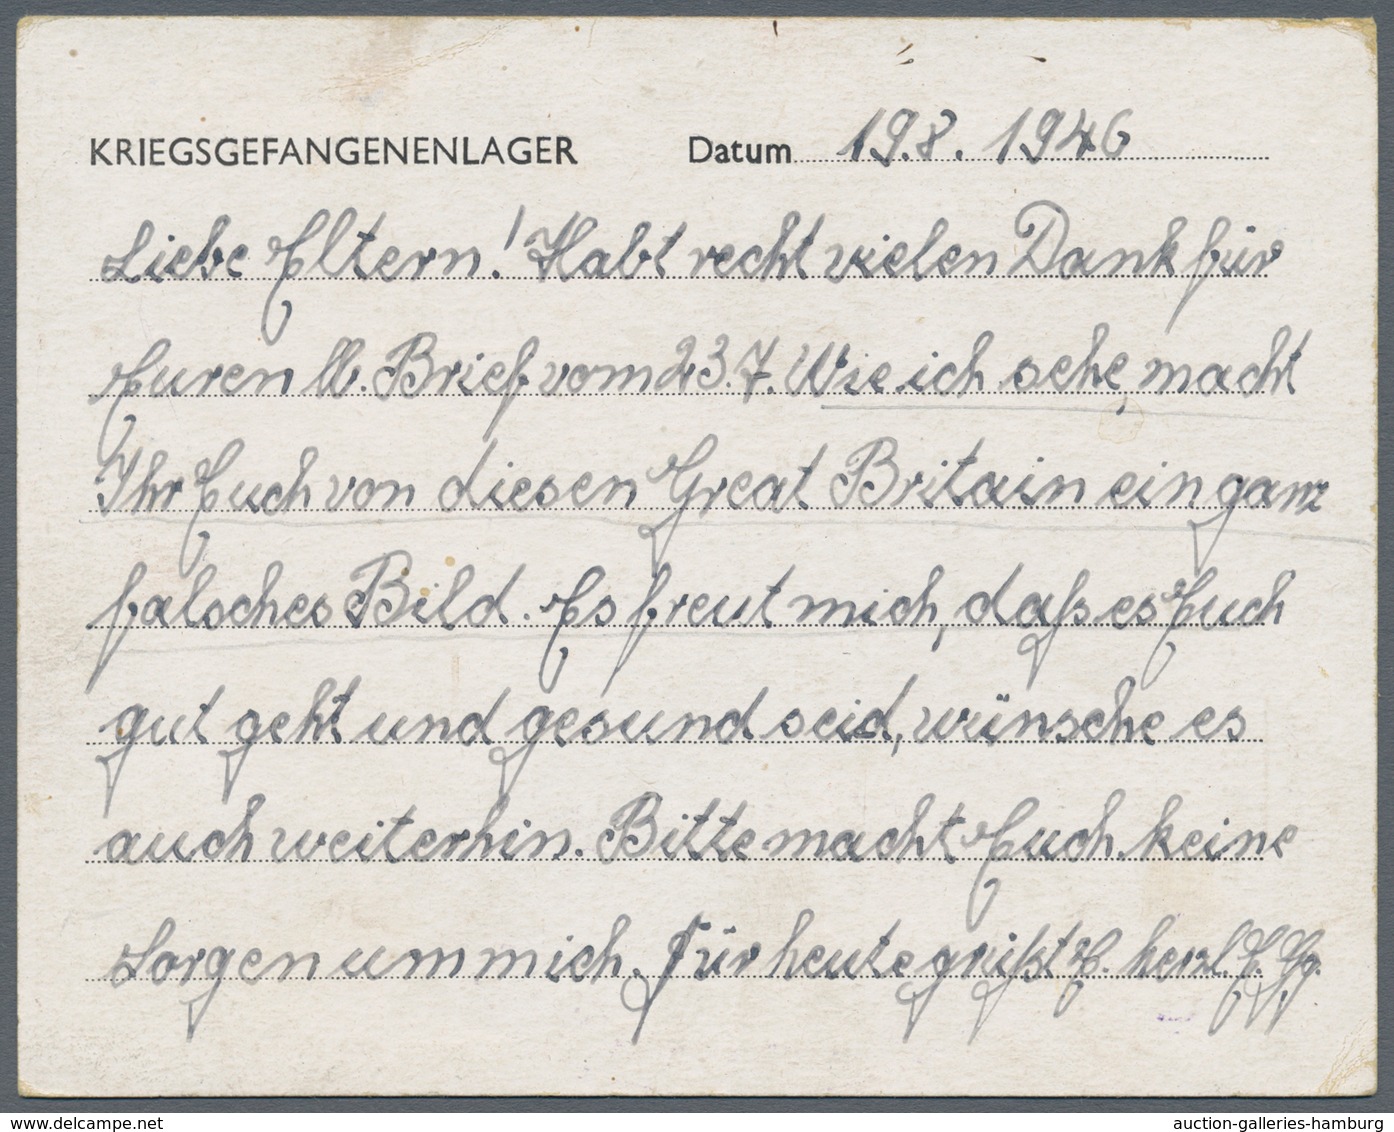 KRIEGSGEFANGENENLAGER Datum 19.8. 1946
Liebe Eltern! Habt recht vielen Dank für
Euren lb. Brief vom 23.7. Wie ich sehe, macht
Ihr Euch von diesen Great Britain ein ganz
falsches Bild. Es freut mich, daß es Euch
gut geht und gesund seid, wünsche es
auch weiterhin. Bitte macht Euch keine
Sorgen um mich. Für heute grüßt E. herzl.
www.delcampe.net
auction-galleries-hamburg